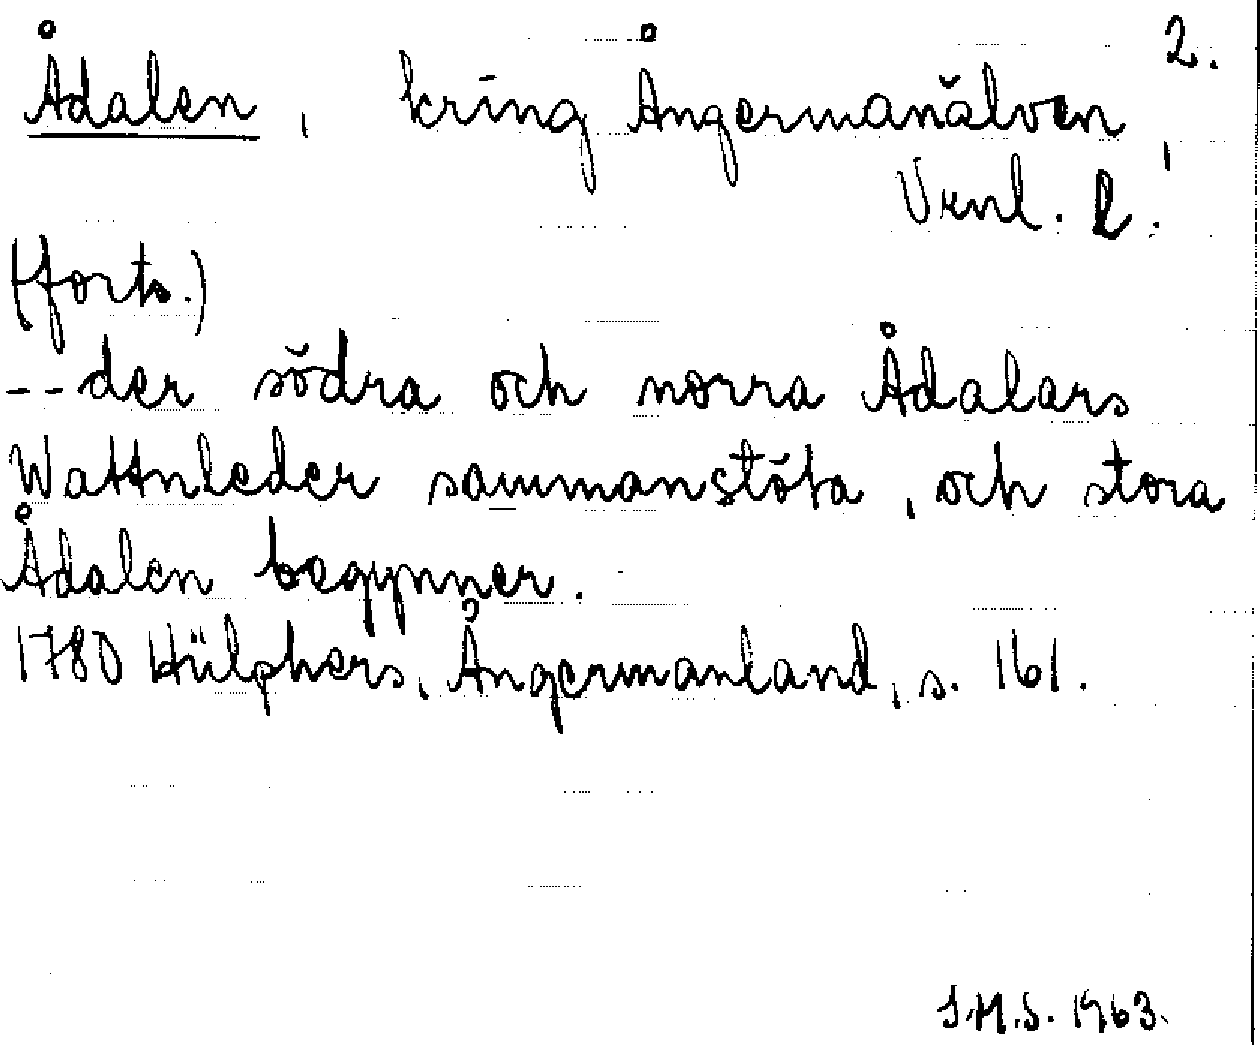 2.
Ådalen, kring Ångermanälven,
Vrnl. l.
(forts.)
--der södra och norra Ådalars
Wattnleder sammanstöta, och stora
Ådalen begynner.
1780 Hülphers, Ångermanland, s. 161.
S.H.S. 1963.